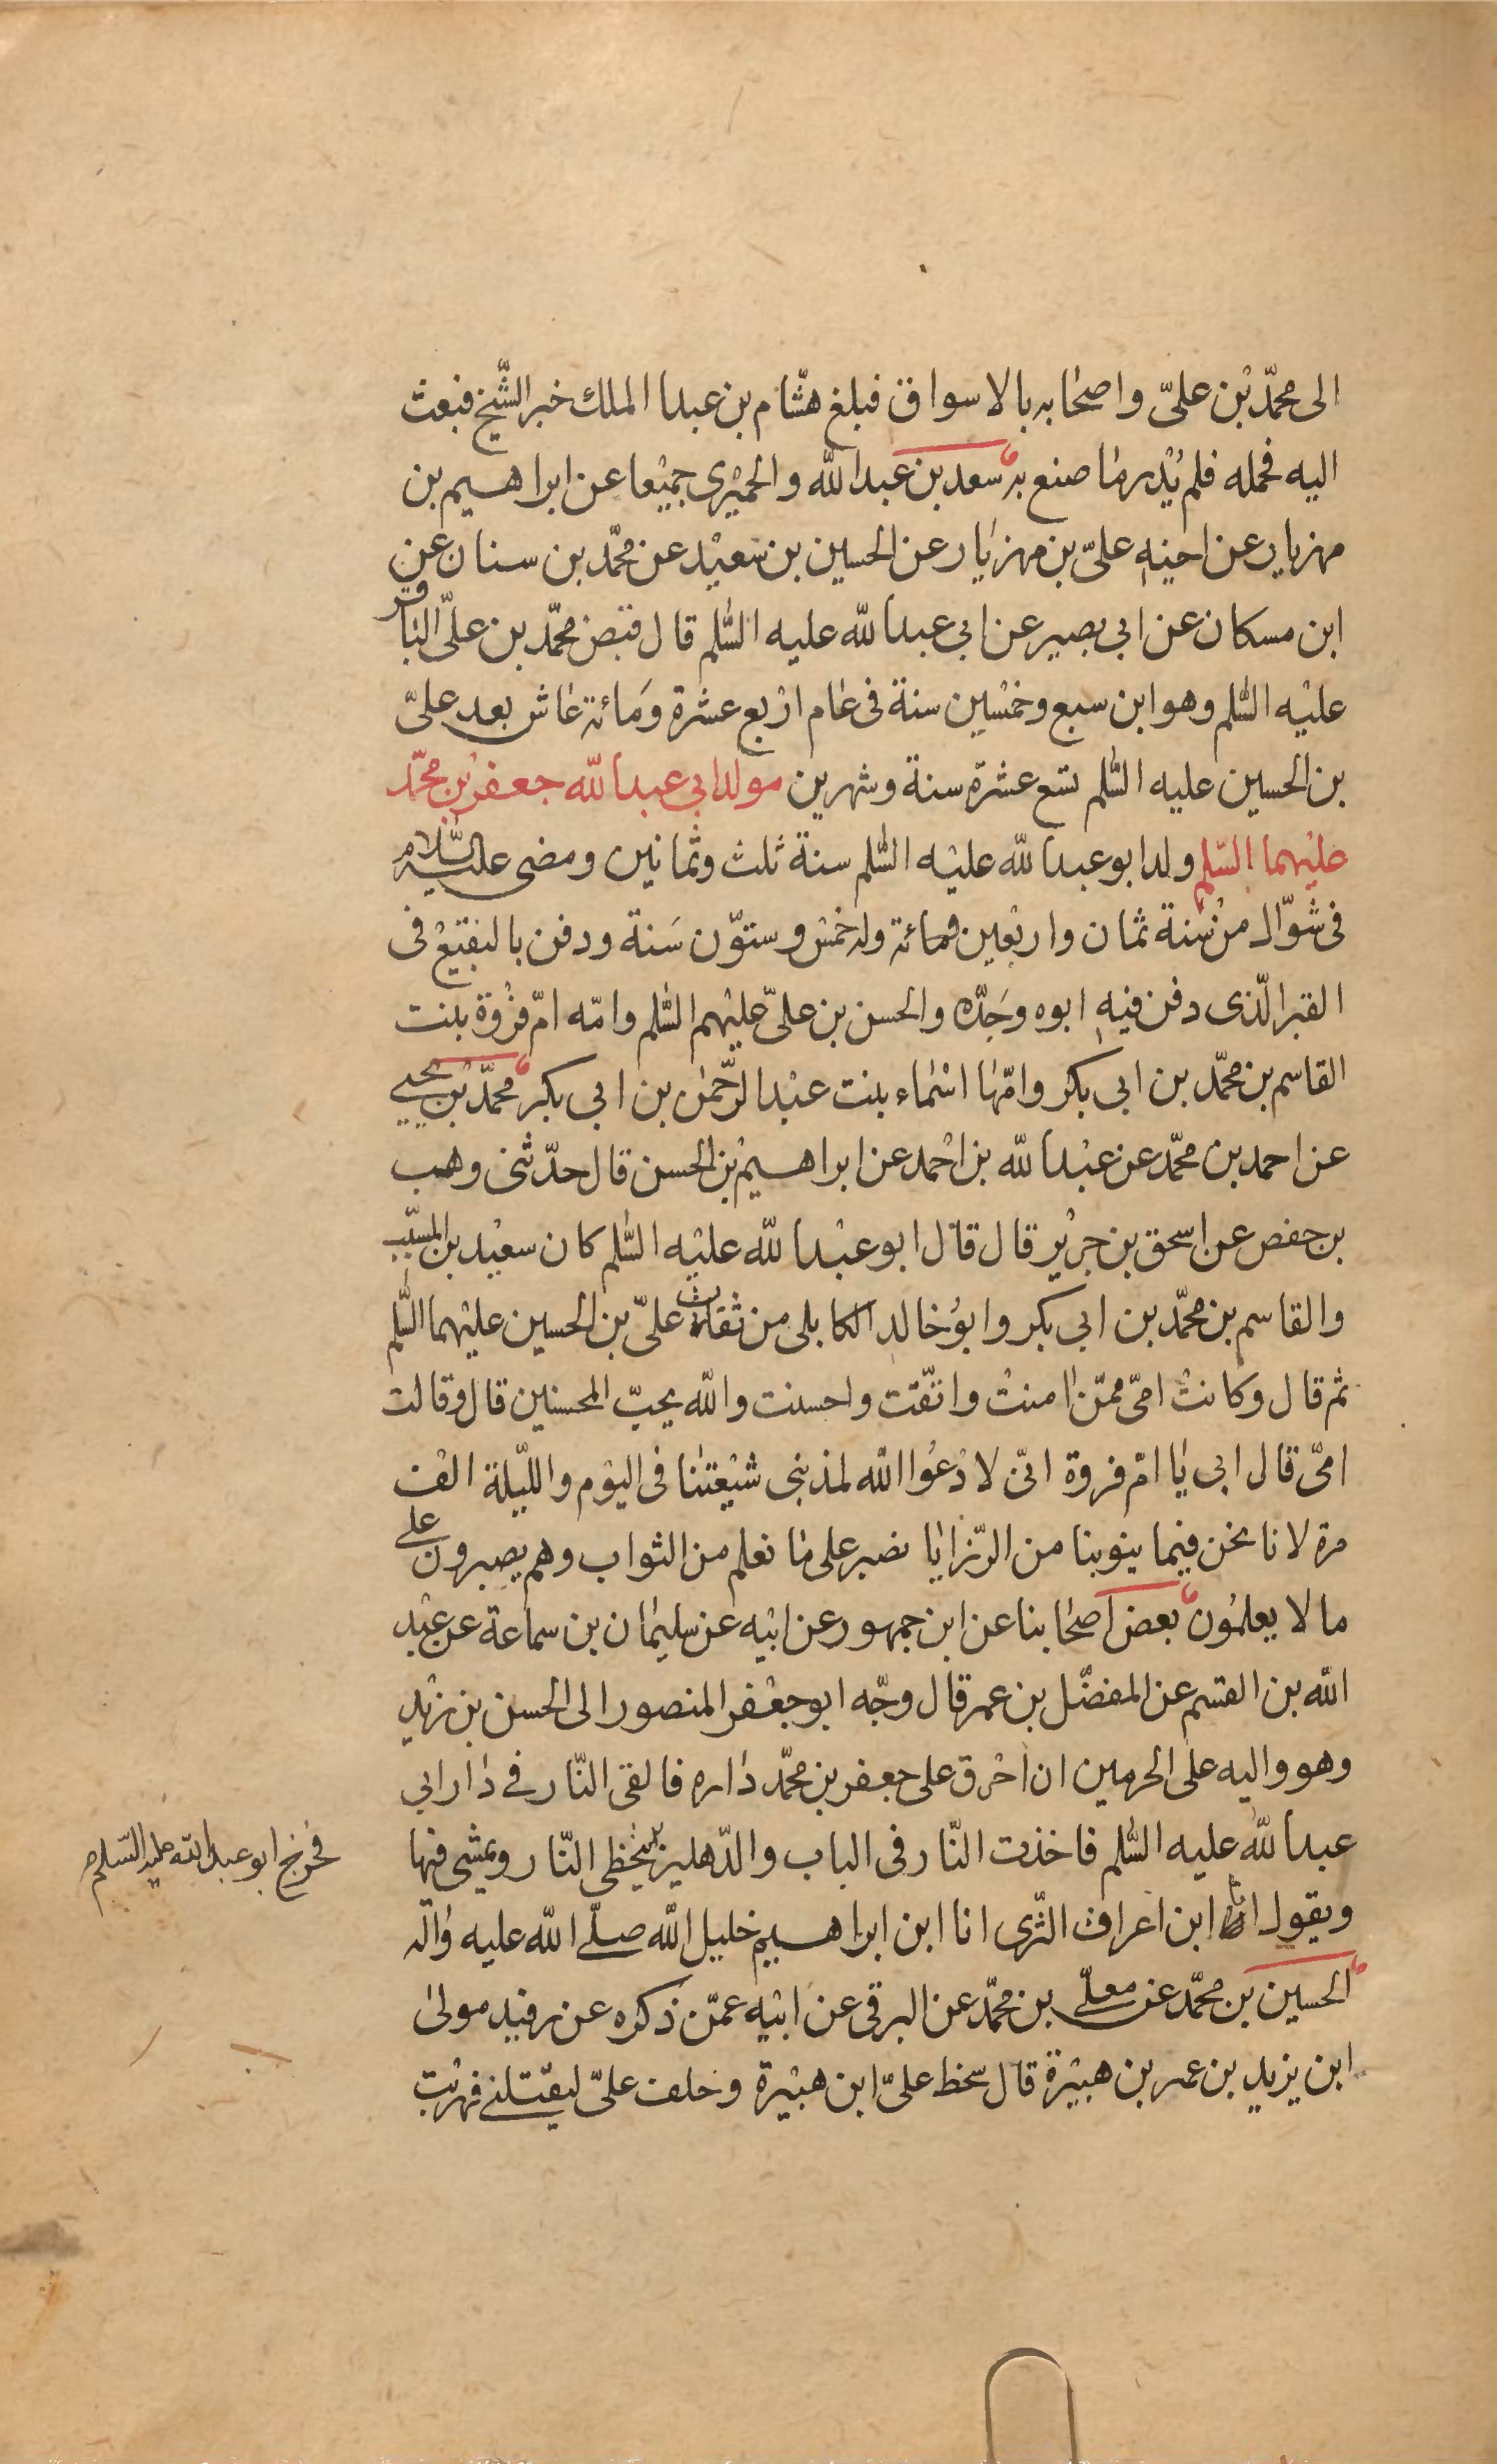 الى محمّد بن علىّ واصحابه بالاسواق فبلغ هشام بن عبد الملك خبر الشّيخ فبعث
اليه فحمله فلم يُدر ما صنع به سعد بن عبد الله والحميرى جميعا عن ابراهيم بن
مهزيار عن اخيه علىّ بن مهزيار عن الحسين بن سعيد عن محمّد بن سنان عن
ابن مسكان عن ابي بصير عن ابي عبد الله عليه السّلم قال قبض محمّد بن علىّ الباقر
عليه السّلم وهو ابن سبع وخمسين سنة فى عام اربع عشرة ومائة عاش بعد علىّ
بن الحسين عليه السّلم تسع عشرة سنة وشهرين مولد ابي عبد الله جعفر بن محمّد
عليهما السّلم ولد ابو عبد الله عليه السّلم سنة ثلث وثمانين ومضى عليه السّلام
فى شوّال من سنة ثمان واربعين ومائة وله خمس وستّون سَنة ودفن بالبقيع فى
القبر الّذى دفن فيه ابوه وجَدّه والحسن بن علىّ عليهم السّلم وامّه امّ فروة بنت
القاسم بن محمّد بن ابي بكر وامّها اسماء بنت عبد الرّحمن بن ابي بكر محمّد بن يحيى
عن احمد بن محمّد عن عبد الله بن احمد عن ابراهيم بن الحسن قال حدّثنى وهب
بن حفص عن اسحق بن جرير قال قال ابو عبد الله عليه السّلم كان سعيد بن المسيّب
والقاسم بن محمّد بن ابي بكر وابو خالد الكابلى من ثقات علىّ بن الحسين عليهما السّلم
ثم قال وكانت امىّ ممّن امنت واتّقت واحسنت والله يحبّ المحسنين قال وقالت
امىّ قال ابي يا امّ فروة انىّ لادعوا الله لمذنبى شيعتنا فى اليوم واللّيلة الف
مرة لانا نحن فيما ينوبنا من الرّزايا نصبر على ما نعلم من الثواب وهم يصبرون على
ما لا يعلمون بعض اصحابنا عن ابن جمهور عن ابيه عن سليمان بن سماعة عن عبد
الله بن القسم عن المفضّل بن عمر قال وجّه ابو جعفر المنصور الى الحسن بن زيد
وهو واليه على الحرمين ان احرق على جعفر بن محمّد داره فالقى النّار فے دار ابي
عبد الله عليه السّلم فاخذت النّار فى الباب والدّهليز يتخطى النّار ويمشى فيها
فخرج ابو عبد الله عليه السّلام
ويقول انا ابن اعراق الثّرى انا ابن ابراهيم خليل الله صلّے الله عليه واله
الحسين بن محمّد عن معلّے بن محمّد عن البرقى عن ابيه عمّن ذكره عن رفيد مولى
ابن يزيد بن عمر بن هبيرة قال سخط علىّ ابن هبيرة وحلف علىّ ليقتلنے فهربت